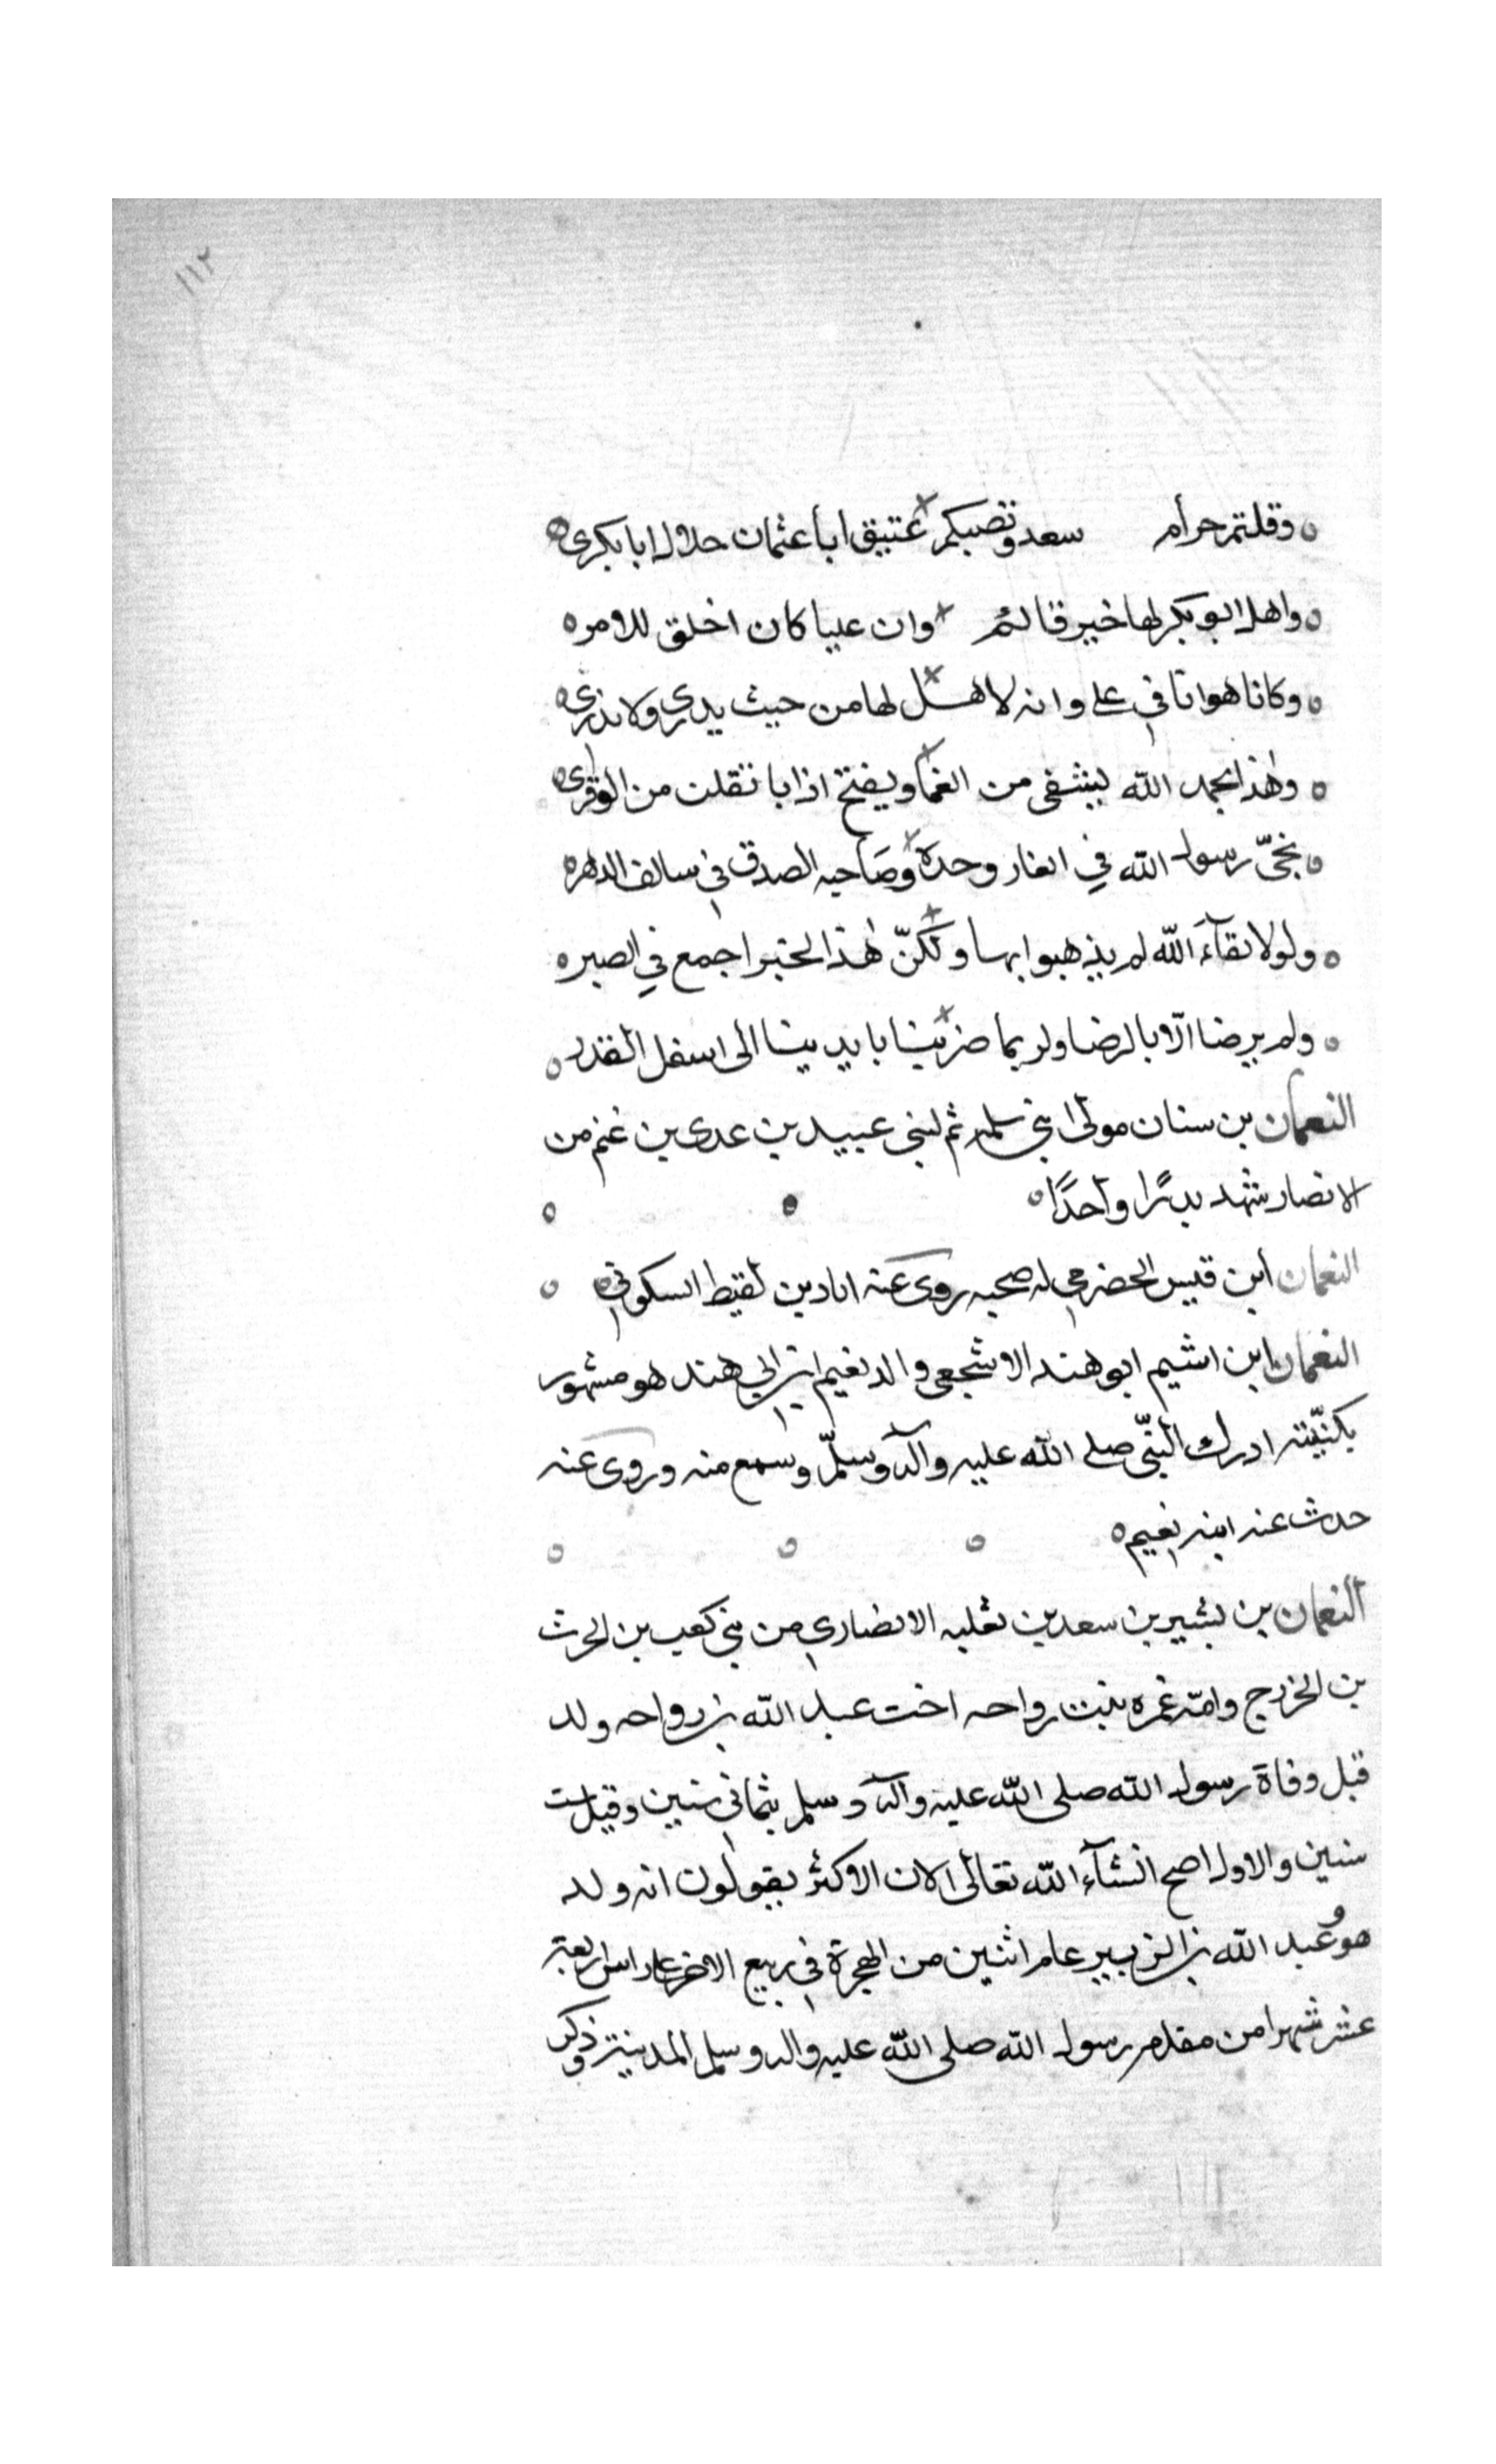 ١١٢
وقلتم حرام سعد ونصبكم عتيق ابا عثمان حلال ابا بكرى
واهل ابو بكر لها خير قائم وان عليا كان اخلق للامر
وكانا هوانا فى على وانه لاهل لها من حيث يدرى ولا ندرى
وهذا بحمد الله يشفى من العما ويفتح اذا با ثقلت من الوقرى
نجىّ رسول الله في الغار وحده وصاحبه الصدق في سالف الدهر
ولولا بقآء الله لم يذهبوا بها ولكنّ هذا الخير اجمع في الصبر
ولم يرضا الّا بالرضا ولربما ضربنا بايدينا الى اسفل القدر
النعمان بن سنان مولى لبنى سلمه ثم لبنى عبيد بن عدى بن غنم من
الانصار شهد بدرًا واحدًا
النعمان ابن قيس الحضرمى له صحبه روى عنه اياد بن لقيط السكونى
النعمان ابن اشيم ابو هند الاشجعى والد نعيم ابن ابى هند هو مشهور
بكنيّته ادرك النبّى صلى الله عليه وآله وسلّم وسمع منه وروى عنه
حدث عنه ابنه نعيم
النعمان بن بشير بن سعد بن ثعلبه الانصارى من بنى كعب بن الحرث
بن الخزرج وامّه عمره بنت رواحه اخت عبد الله بن رواحه ولد
قبل وفاة رسول الله صلى الله عليه وآله وسلم بثمانى سنين وقيل ست
سنين والاول اصح انشآء الله تعالى لان الاكثر يقولون انه ولد
هو وعبد الله بن الزبير عام اثنين من الهجرة في ربيع الاخر على راس اربعة
عشر شهرا من مقدم رسول الله صلى الله عليه واله وسلم المدينة وذكر